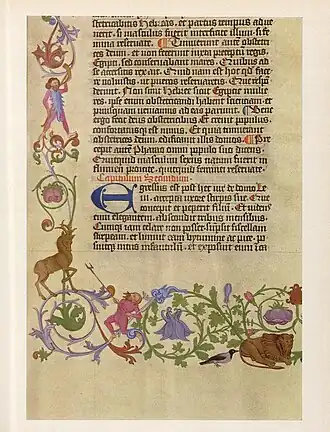 stetricabitis Hebreas, et partus tempus adve
nerit: si masculus fuerit interficite illum: si femi
na reservate. Timuerunt autem obstetri
ces deum: et non fecerunt iuxta preceptum regis
Egipti: sed conservabant mares. Quibus ad
se accersitis rex ait. Quid nam est hoc qd face
re voluistis: ut pueros reservaretis. Que respon
derunt. Non sunt hebree sicut Egipcie mulie
res. ipse enim obstetricandi habent scientiam: et
priusquam veniamus ad eas pariunt. Bene
ergo fecit deus obstetricibus. Et crevit populus
confortatusque est nimis. Et quia timuerunt
obstetrices deum: edificavit illis domos. Pre
cepit autem Pharao omni populo suo dicens.
Quicquid masculini sexus natum fuerit in
flumen proicite: quicquid feminei reservate.
Capitulum Secundum.
Egressus est post hec vir de domo Le
vi: accepta uxore stirpis sue. Que
concepit et peperit filium. Et videns
eum elegantem: abscondit tribus mensibus.
Cumque iam celare non posset: sumpsit fiscellam
scirpeam: et linivit eam bitumine ac pice: po
suitque intus infantulum: et exposuit eum in ca